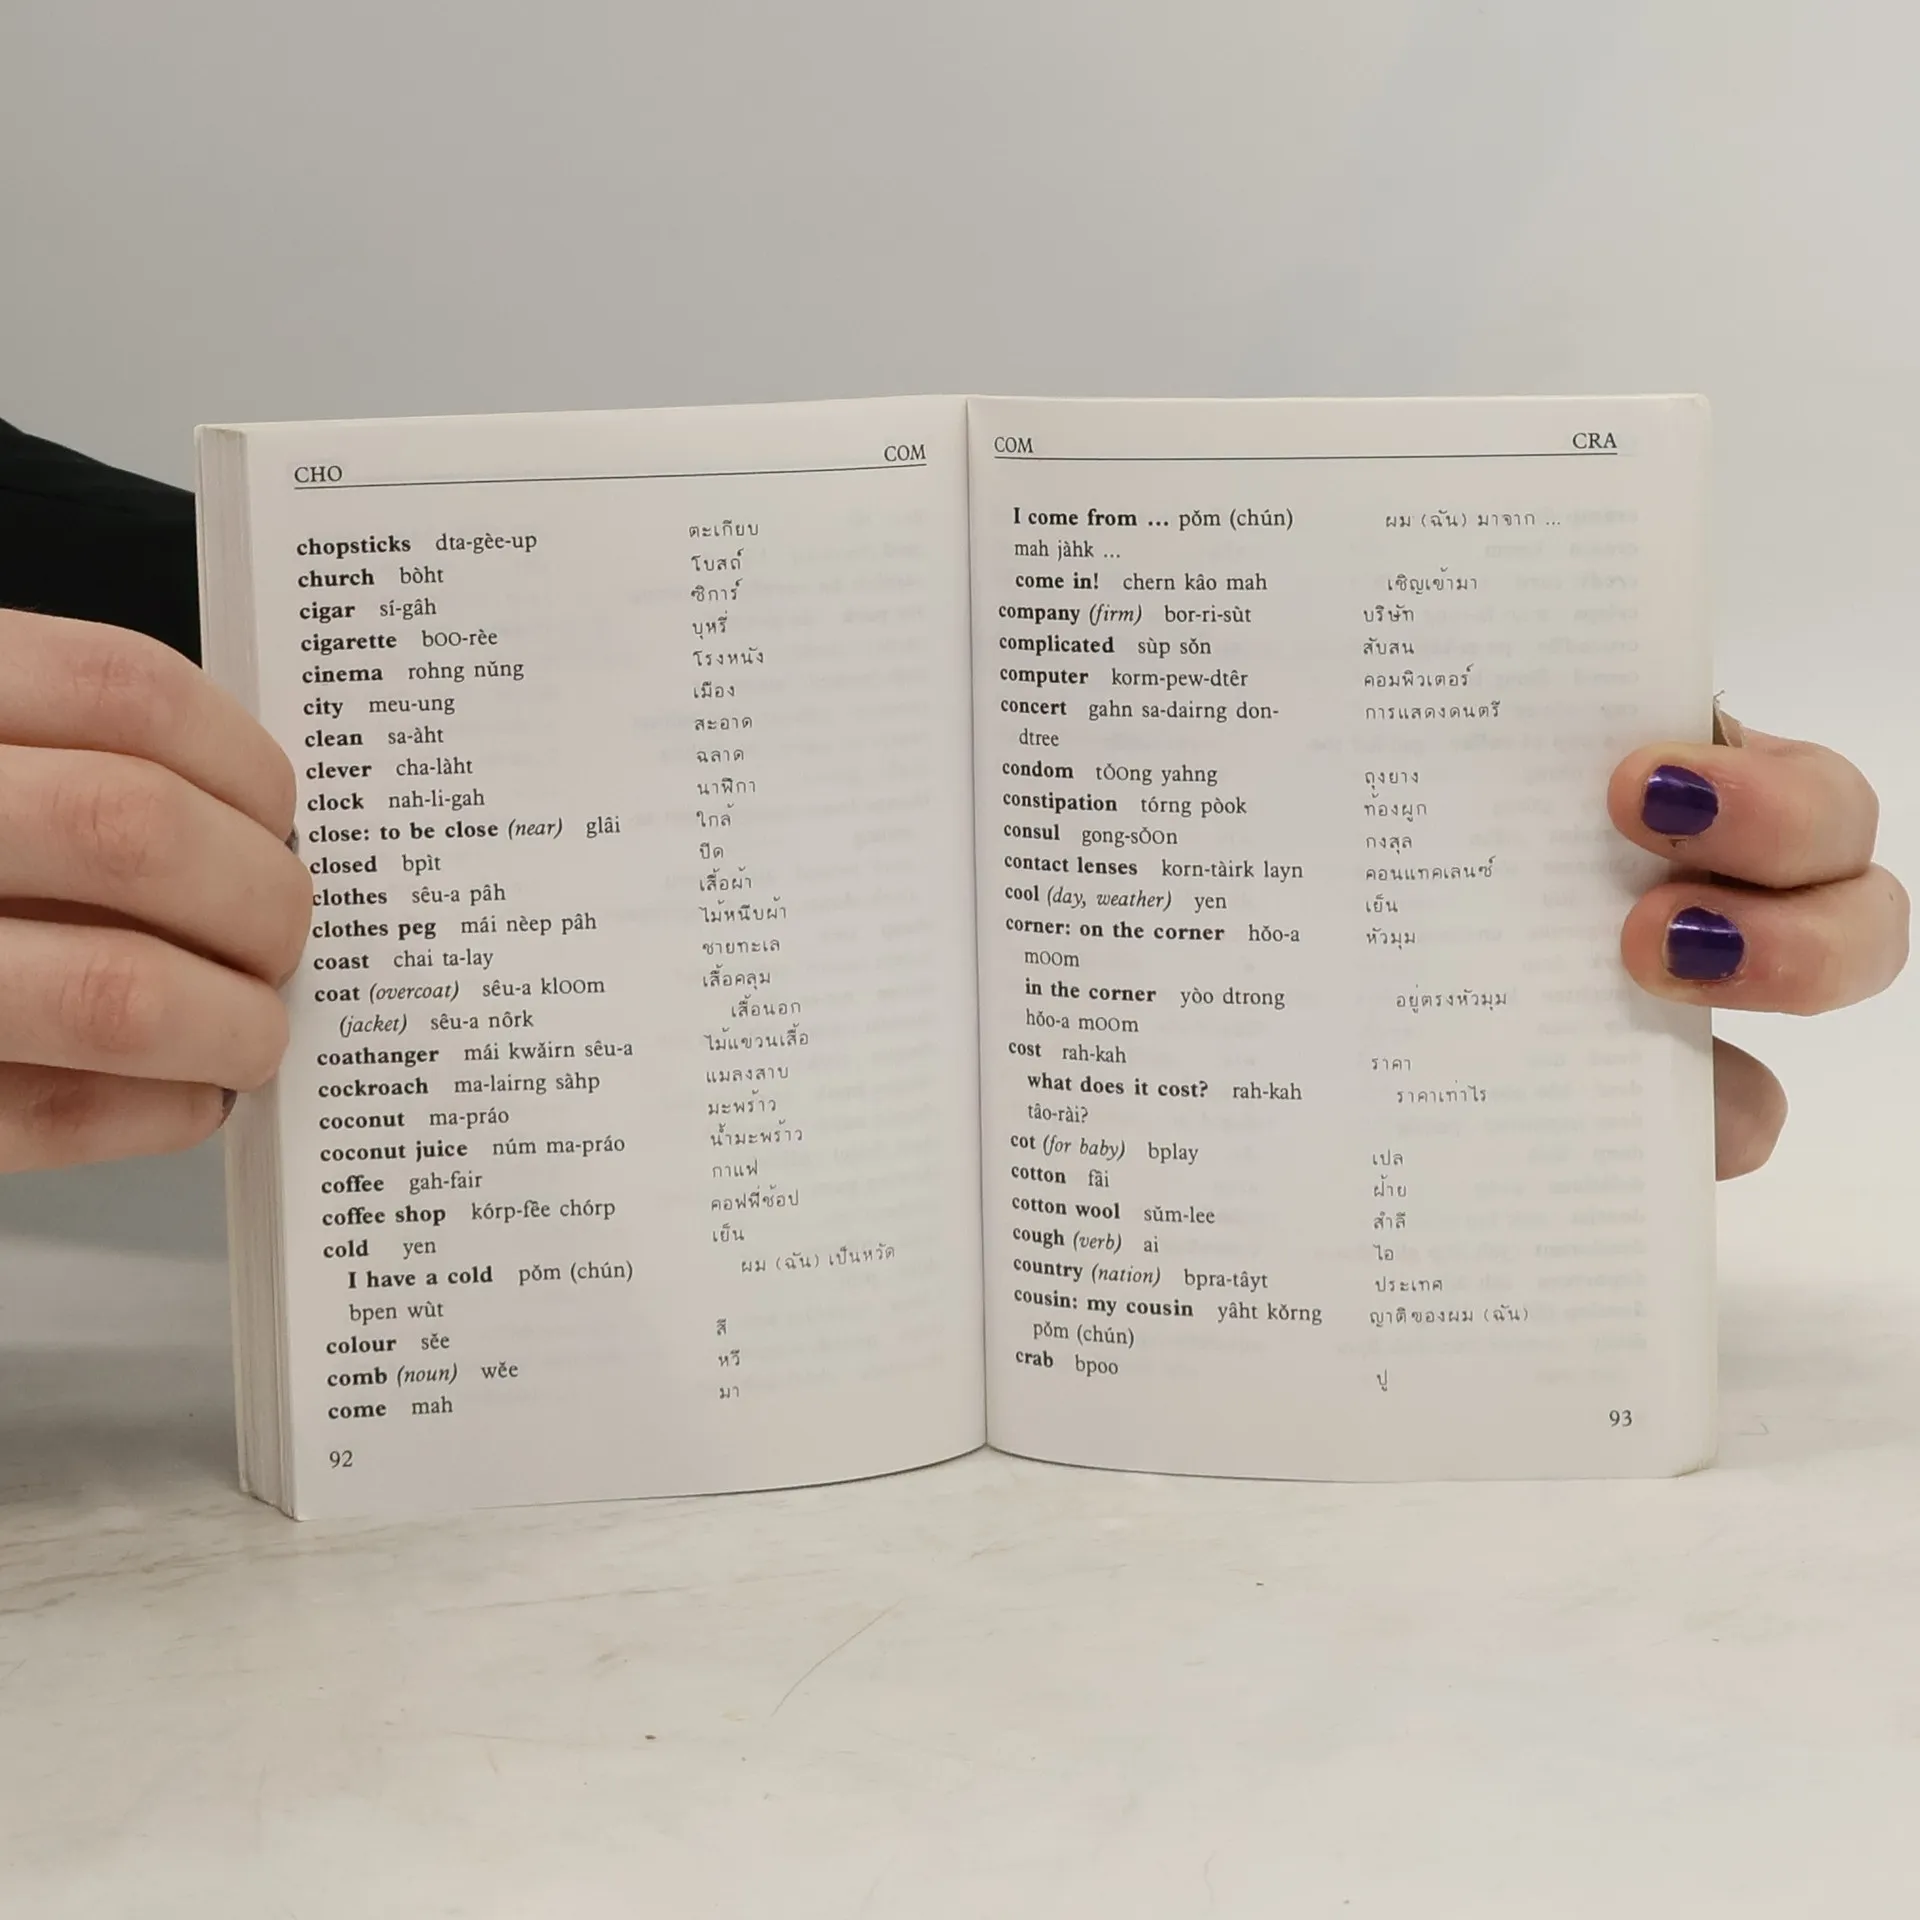 CHO COM
chopsticks dta-gèe-up ตะเกียบ
church bòht โบสถ์
cigar sí-gâh ซิการ์
cigarette bOO-rèe บุหรี่
cinema rohng nŭng โรงหนัง
city meu-ung เมือง
clean sa-àht สะอาด
clever cha-làht ฉลาด
clock nah-li-gah นาฬิกา
close: to be close (near) glâi ใกล้
closed bpìt ปิด
clothes sêu-a pâh เสื้อผ้า
clothes peg mái nèep pâh ไม้หนีบผ้า
coast chai ta-lay ชายทะเล
coat (overcoat) sêu-a klOOm เสื้อคลุม
(jacket) sêu-a nôrk เสื้อนอก
coathanger mái kwăirn sêu-a ไม้แขวนเสื้อ
cockroach ma-lairng sàhp แมลงสาบ
coconut ma-práo มะพร้าว
coconut juice núm ma-práo น้ำมะพร้าว
coffee gah-fair กาแฟ
coffee shop kórp-fêe chórp คอฟฟี่ช้อป
cold yen เย็น
I have a cold pǒm (chún) ผม (ฉัน) เป็นหวัด
bpen wùt
colour sěe สี
comb (noun) wěe หวี
come mah มา
92
COM CRA
I come from ... pǒm (chún) ผม (ฉัน) มาจาก ...
mah jàhk ...
come in! chern kâo mah เชิญเข้ามา
company (firm) bor-ri-sùt บริษัท
complicated sùp sŏn สับสน
computer korm-pew-dtêr คอมพิวเตอร์
concert gahn sa-dairng don- การแสดงดนตรี
dtree
condom tǑOng yahng ถุงยาง
constipation tórng pòok ท้องผูก
consul gong-sǑOn กงสุล
contact lenses korn-tàirk layn คอนแทคเลนซ์
cool (day, weather) yen เย็น
corner: on the corner hŏo-a หัวมุม
mOOm
in the corner yòo dtrong อยู่ตรงหัวมุม
hŏo-a mOOm
cost rah-kah ราคา
what does it cost? rah-kah ราคาเท่าไร
tâo-rài?
cot (for baby) bplay เปล
cotton fâi ฝ้าย
cotton wool sŭm-lee สำลี
cough (verb) ai ไอ
country (nation) bpra-tâyt ประเทศ
cousin: my cousin yâht kŏrng ญาติของผม (ฉัน)
pŏm (chún)
crab bpoo ปู
93